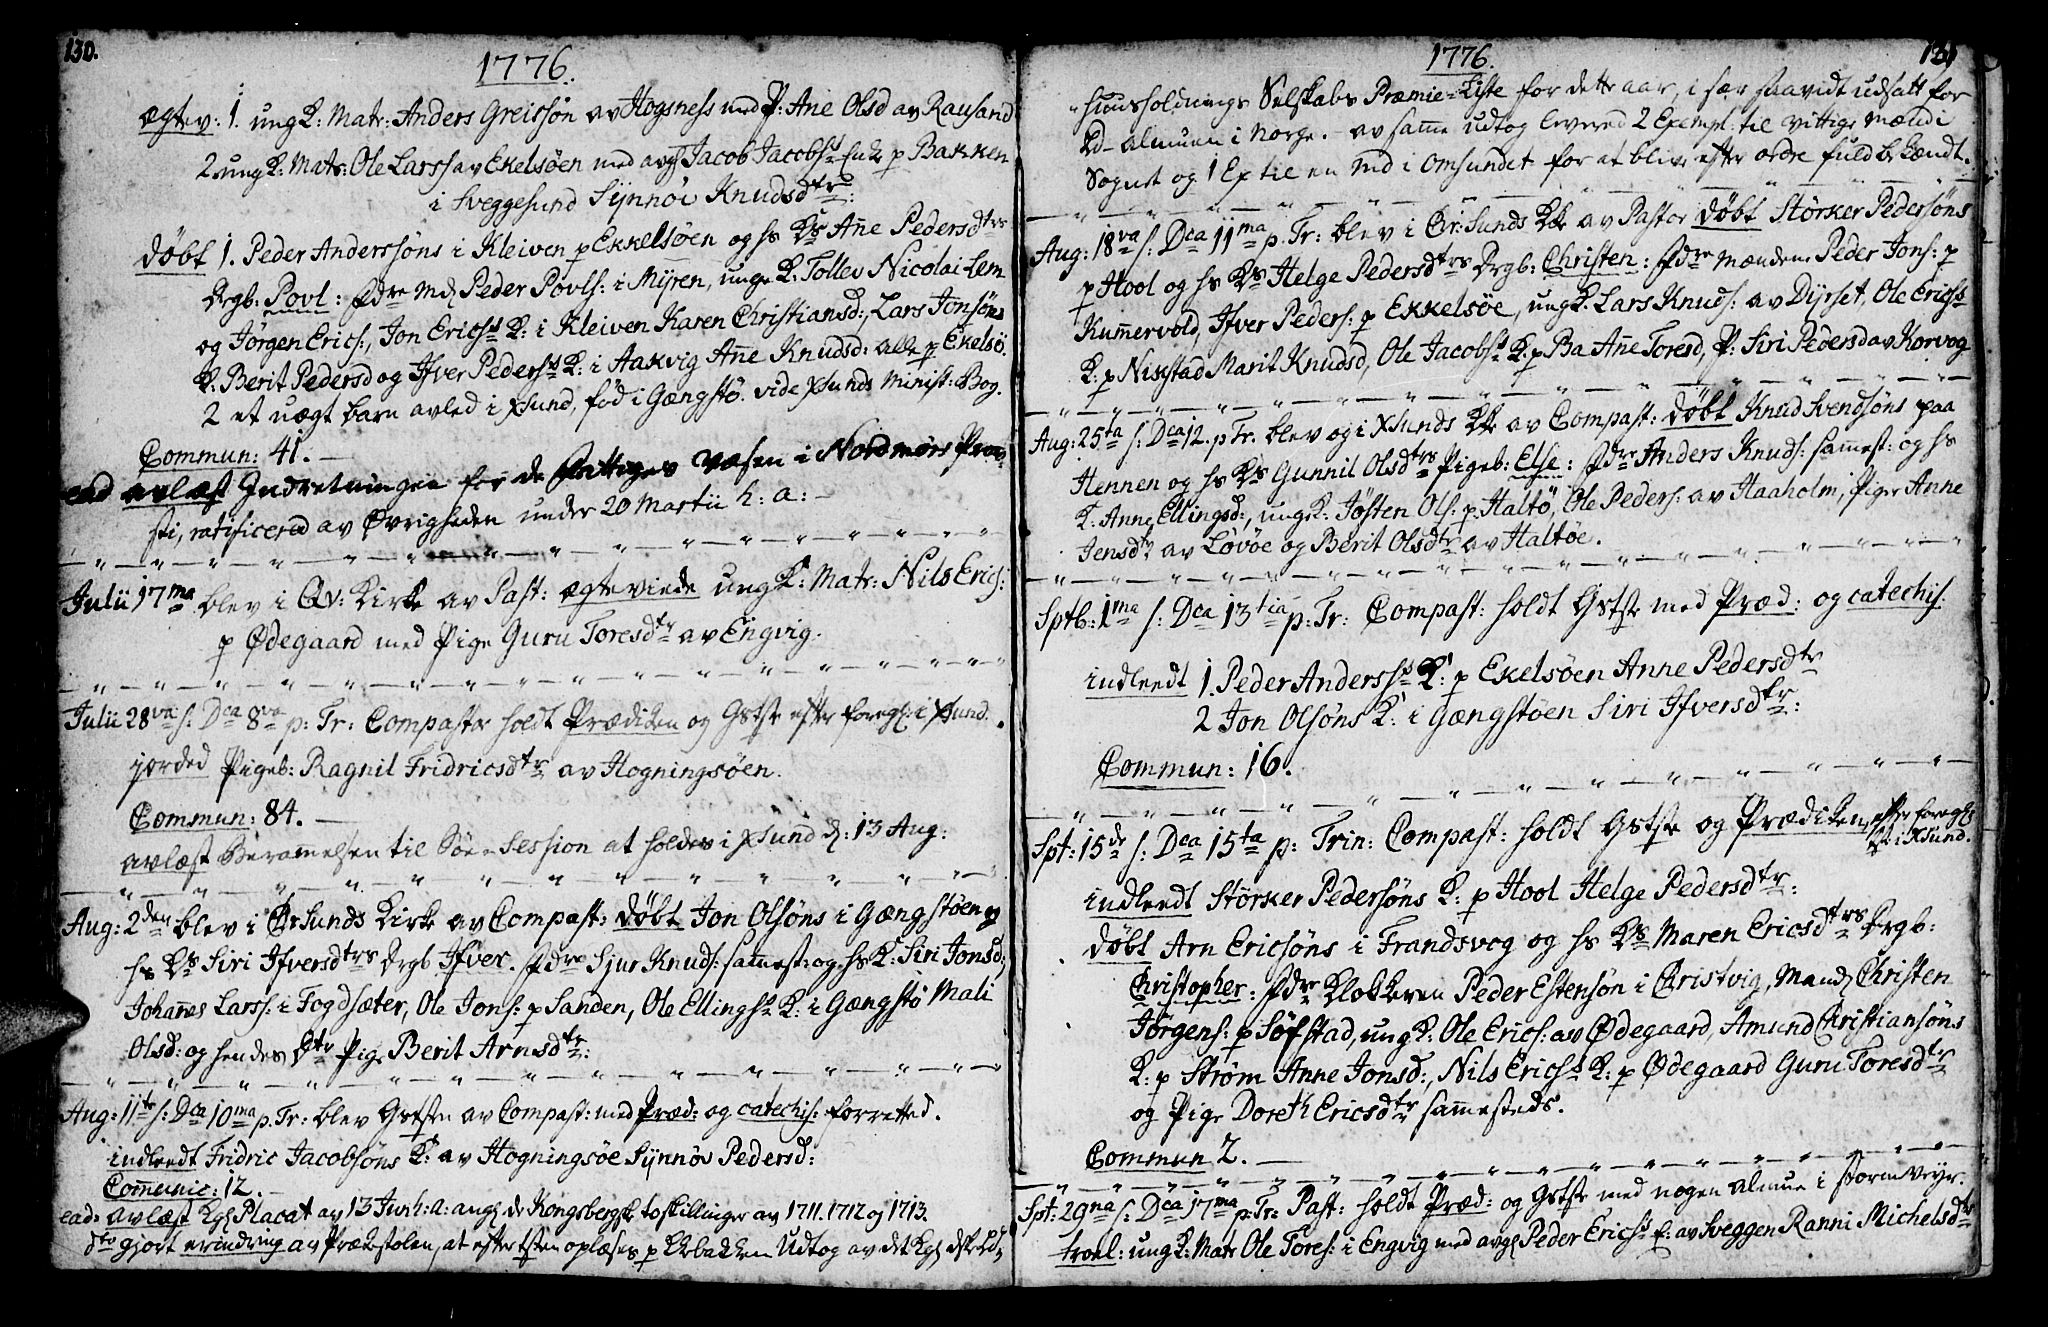 130.
1776.
ægtev: 1. ung K: Matr: Anders Greissøn av Hogsness med P: Ane Olsd av Rausand
2. ung K: Matr: Ole Larss av Ekelsøen med avg Jacob Jacobs: Enke p Bakken
i Sveggesund Synnøv Knudsdtr:
døbt 1. Peder Anderssøns i Kleiven p Ekkelsøen og hs Ks Añe Pedersdtrs
Drgb: Povl: Fdre Md Peder Povls: i Myren, unge K. Tollev Nicolai Lem
og Jørgen Erics:, Jon Erics K: i Kleiven Karen Christiansd:, Lars Jonsøns
K: Berit Pedersd og Ifver Peders K: i Aakvig Añe Knudsd: alle p Ekelsø.
2 et uægt barn avled i Xsund, fød i Gængstø. vide Xsunds Minist: Bog.
Commun: 41. —
ead avlæst Indretningen for de fattiges Væsen i Nordmørs Prov-
sti, ratificered av Øvrigheden under 20 Martii h: a: —
Julii 17ma blev i Qv: Kirke av Past: ægteviede ung K: Matr: Nils Erics:
p Ødegaard med Pige Guru Toresdtr av Engvig.
Julii 28va s: Dca 8va p: Tr: Compastor holdt Prædiken og Gstste efter foreg: i Xsund.
jorded Pigeb: Ragnil Fridricsdtr av Hogningsøen.
Commun: 84. —
avlæst Berammelsen til Søe-Session at holdes i Xsund d: 13 Aug:
Aug: 2den blev i ChrSunds Kirke av Compast: døbt Jon Olsøns i Gængstøen og
hs Ks Siri Ifversdtrs Drgb Ifver. Fdre Sjur Knuds: sammest: og hs K: Siri Jonsd:,
Johañes Larss: i Fogdsæter, Ole Jons: p Sanden, Ole Ellings K: i Gængstø Mali
Olsd: og hendes Dtr Pige Berit Arnsdtr:
Aug: 11te s: Dca 10ma p. Tr: blev Gstste av Compast: med Præd: og catechis: forretted.
indleedt Fridric Jacobsøns K: av Hogningsøe Synnøv Pedersd:
Communic: 12. —
ead: avlæst Kgl Placat av 13 Jun h: a: ang de Kongsbergske toskillinger av 1711. 1712 og 1713.
dto gjort erindring av Prækestolen, at efter tsten oplæses p Kkbakken Udtog av det Kgl dske Ld-
1776.
131
huusholdnings Selskabs Præmie-Liste for dette aar, i sær saavidt udsatt for
Ld-almuen i Norge. — av samme udtog levered 2 Exempl: til vittige mænd i
Sognet og 1 Ex til en md i Omsundet for at blive efter ordre fuld bekændt.
Aug: 18va s: Dca 11ma p. Tr: blev i Chr:Sunds Kke av Pastor døbt Størker Pedersøns
p Hool og hs Ks Helge Pedersdtrs Drgb: Christen: Fdre Mændene Peder Jons: p
Kummervold, Ifver Peders: p Ekkelsøe, ung K. Lars Knuds: av Dyrset, Ole Erics
K: p Nixstad Marit Knudsd, Ole Jacobs K: p Ba Añe Toresd, P: Siri Pedersd av Korvog
Aug: 25ta s: Dca 12. p Tr. blev og i Xsunds Kke av Compast: døbt Knud Svendsøns paa
Hennen og hs Ks Gunnil Olsdtrs Pigeb: Else: Fdre Anders Knuds: sammest: og hs
K: Anne Ellingsd:, ung K: Jøsten Ols: p. Haltø, Ole Peders: av Haaholm, Piger Anne
Jensdtr av Løvøe og Berit Olsdtr av Haltøe.
Sptb: 1ma s: Dca 13tia p: Tr: Compast: holdt Gstste med Præd: og catechis:
indleedt 1. Peder Anders K: p Ekelsøen Anne Pedersdtr
2 Jon Olsøns K: i Gængstøen Siri Ifversdtr:
Commun: 16.
Spt: 15de s: Dca 15ta p: Trin: Compast: holdt Gstste og Prædiken, efter foreg
i Xsund.
indleedt Størker Pedersøns K: p Hool Helge Pedersdtr:
døbt Arn Ericsøns i Frandsvog og hs Ks Maren Ericsdtrs Drgb:
Christopher: Fdre Klokkeren Peder Estensøn i Christvig, Mand Christen
Jørgens: p Søfstad, ung K: Ole Erics: av Ødegaard, Amund Christiansøns
K: p Strøm Anne Jonsd:, Nils Erics K: p Ødegaard Guru Toresdtr
og Pige Doreth Ericsdtr sammesteds.
Commun 2. —
Spt: 29na s: Dca 17ma p: Tr: Past: holdt Præd: og Gstste med nogen almue i storm veyr.
trovl: ung K: Matr Ole Tores: i Engvig med avg Peder Erics E: av Sveggen Ranni Michelsdtr